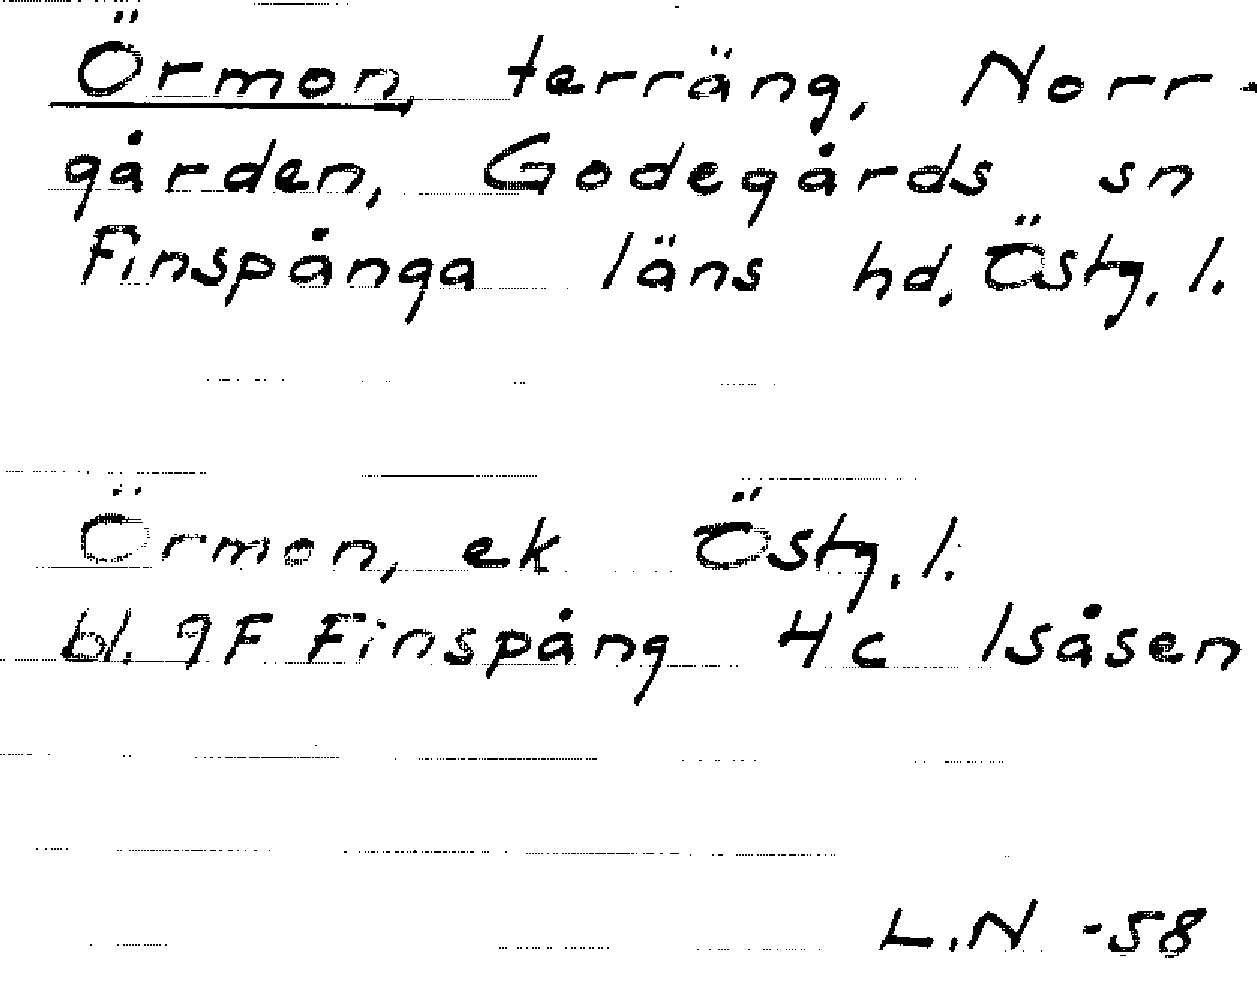 Örmon terräng, Norr-
gården, Godegårds sn
Finspånga läns hd. Östg. l.
Örmon, ek Östg. l.
bl. 9F Finspång 4c Isåsen
L.N -58